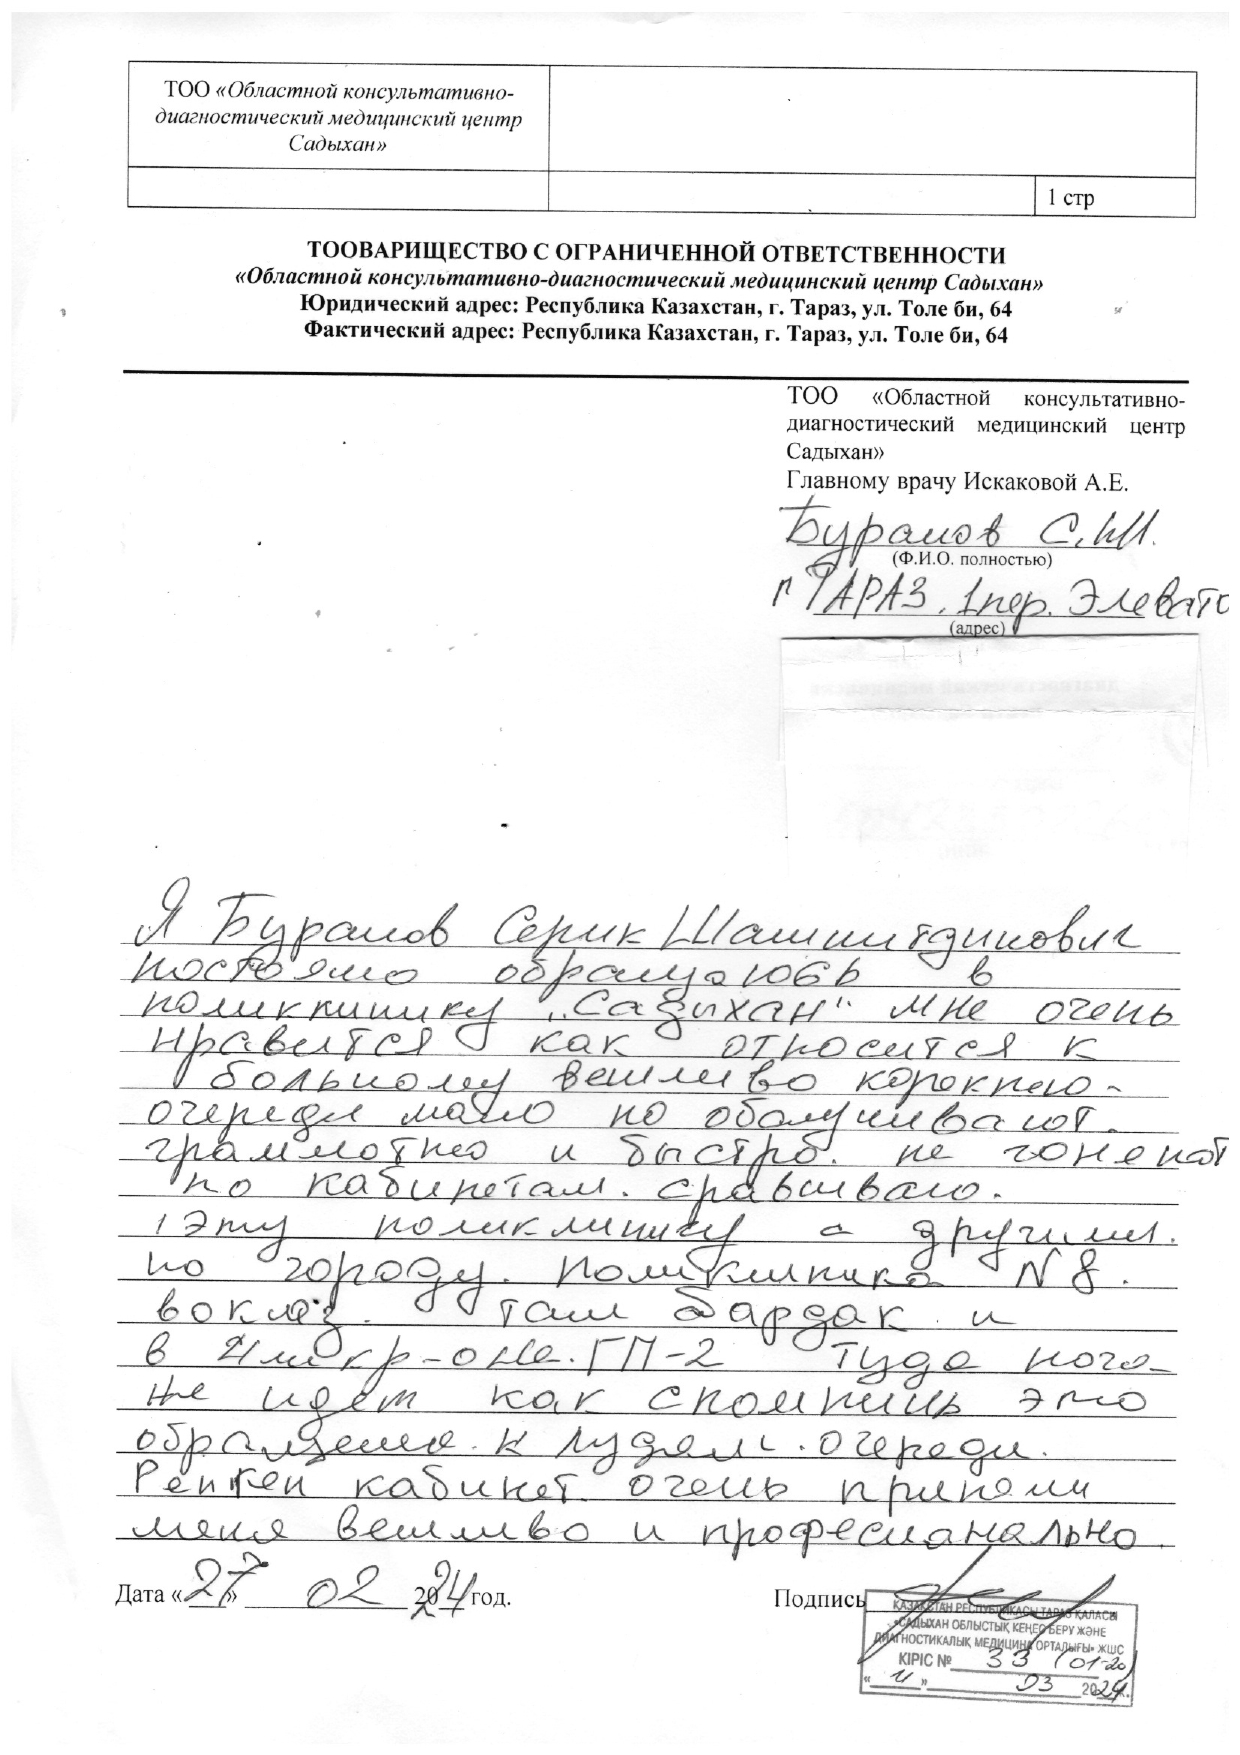 ТОО «Областной консультативно-
диагностический медицинский центр
Садыхан»
1 стр
ТООВАРИЩЕСТВО С ОГРАНИЧЕННОЙ ОТВЕТСТВЕННОСТИ
«Областной консультативно-диагностический медицинский центр Садыхан»
Юридический адрес: Республика Казахстан, г. Тараз, ул. Толе би, 64
Фактический адрес: Республика Казахстан, г. Тараз, ул. Толе би, 64
ТОО «Областной консультативно-
диагностический медицинский центр
Садыхан»
Главному врачу Искаковой А.Е.
Бурамов С.Ш.
(Ф.И.О. полностью)
г ТАРАЗ. 1 пер. Элевато
(адрес)
Я Бурамов Серик
постояно обращаюсь в
поликлинику „Садыхан" мне очень
нравится как относится к
больному вешливо
очереди мало но
грамотно и быстро. не гоняют
по кабинетам. сравниваю.
эту поликлинику с другими.
по городу. Поликлиника N 8.
там бардак и
в ГП-2 туда ноги
не идет как спомнишь это
обращение к людям. очереди.
Рентген кабинет очень приняли
меня вешливо и професианально.
Дата «27» 02 2024 год.
Подпись
ҚАЗАҚСТАН РЕСПУБЛИКАСЫ ТАРАЗ ҚАЛАСЫ
«САДЫХАН ОБЛЫСТЫҚ КЕҢЕС БЕРУ ЖӘНЕ
ДИАГНОСТИКАЛЫҚ МЕДИЦИНА ОРТАЛЫҒЫ» ЖШС
КІРІС № 33 (01-20)
03 2024 ж.